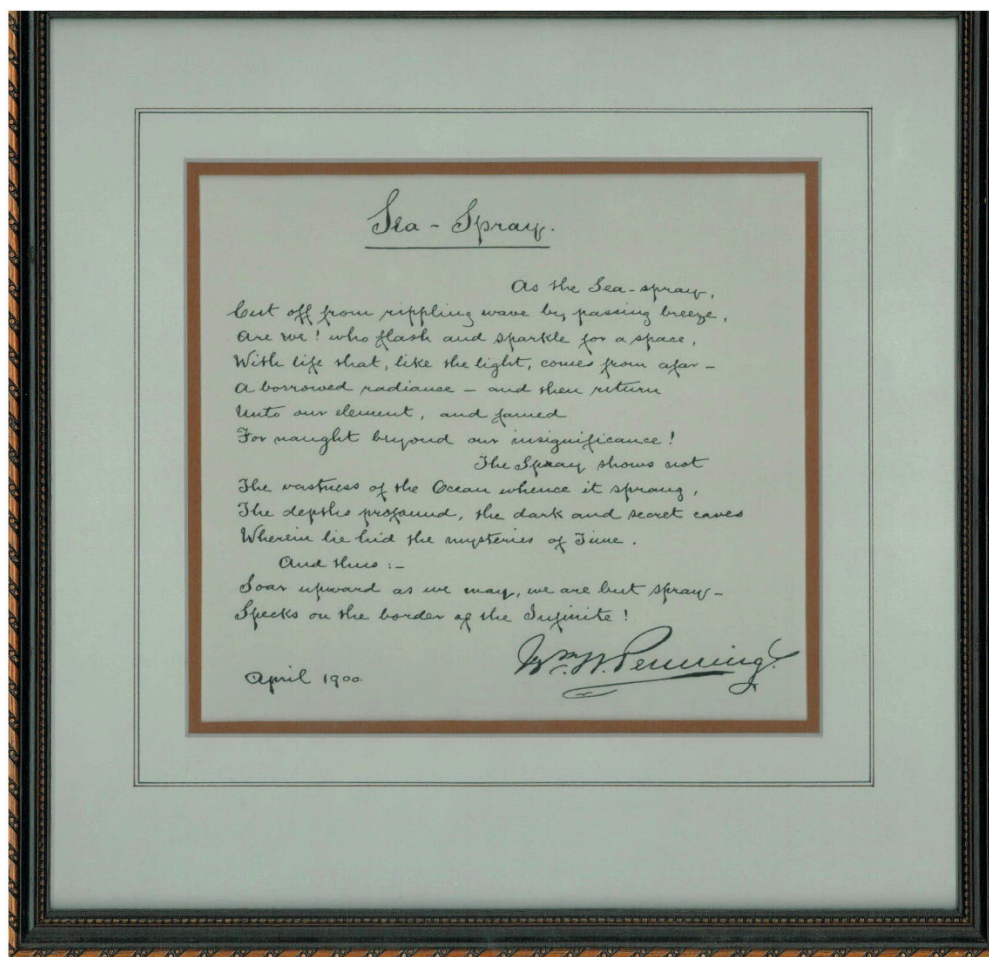 Sea - Spray.
As the Sea-spray,
Cut off from rippling wave by passing breeze,
Are we! who flash and sparkle for a space,
With life that, like the light, comes from afar –
A borrowed radiance – and then return
Unto our element, and famed
For naught beyond our insignificance!
The Spray shows not
The vastness of the Ocean whence it sprang,
The depths profound, the dark and secret caves
Wherein lie hid the mysteries of Time.
And thus :–
Soar upward as we may, we are but spray –
Specks on the border of the Infinite!
Wm. W. Penning.
April 1900.